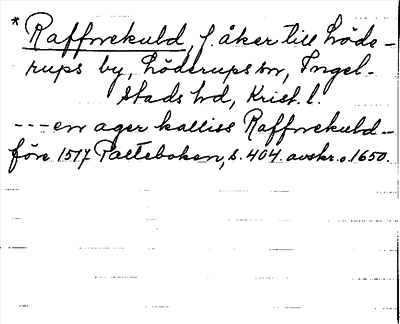 * Raffnekuld, f. åker till Löde-
rups by, Löderups sn, Ingel-
stads hd, Krist. l.
---en ager kalliss Raffnekuld-
före 1517 Palteboken, s. 404. avskr. o 1650.